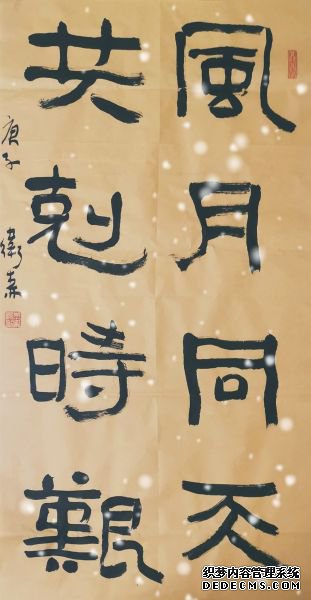 風月同天
共剋時艱
庚子衛森
织梦内容管理系统
DEDECMS.COM